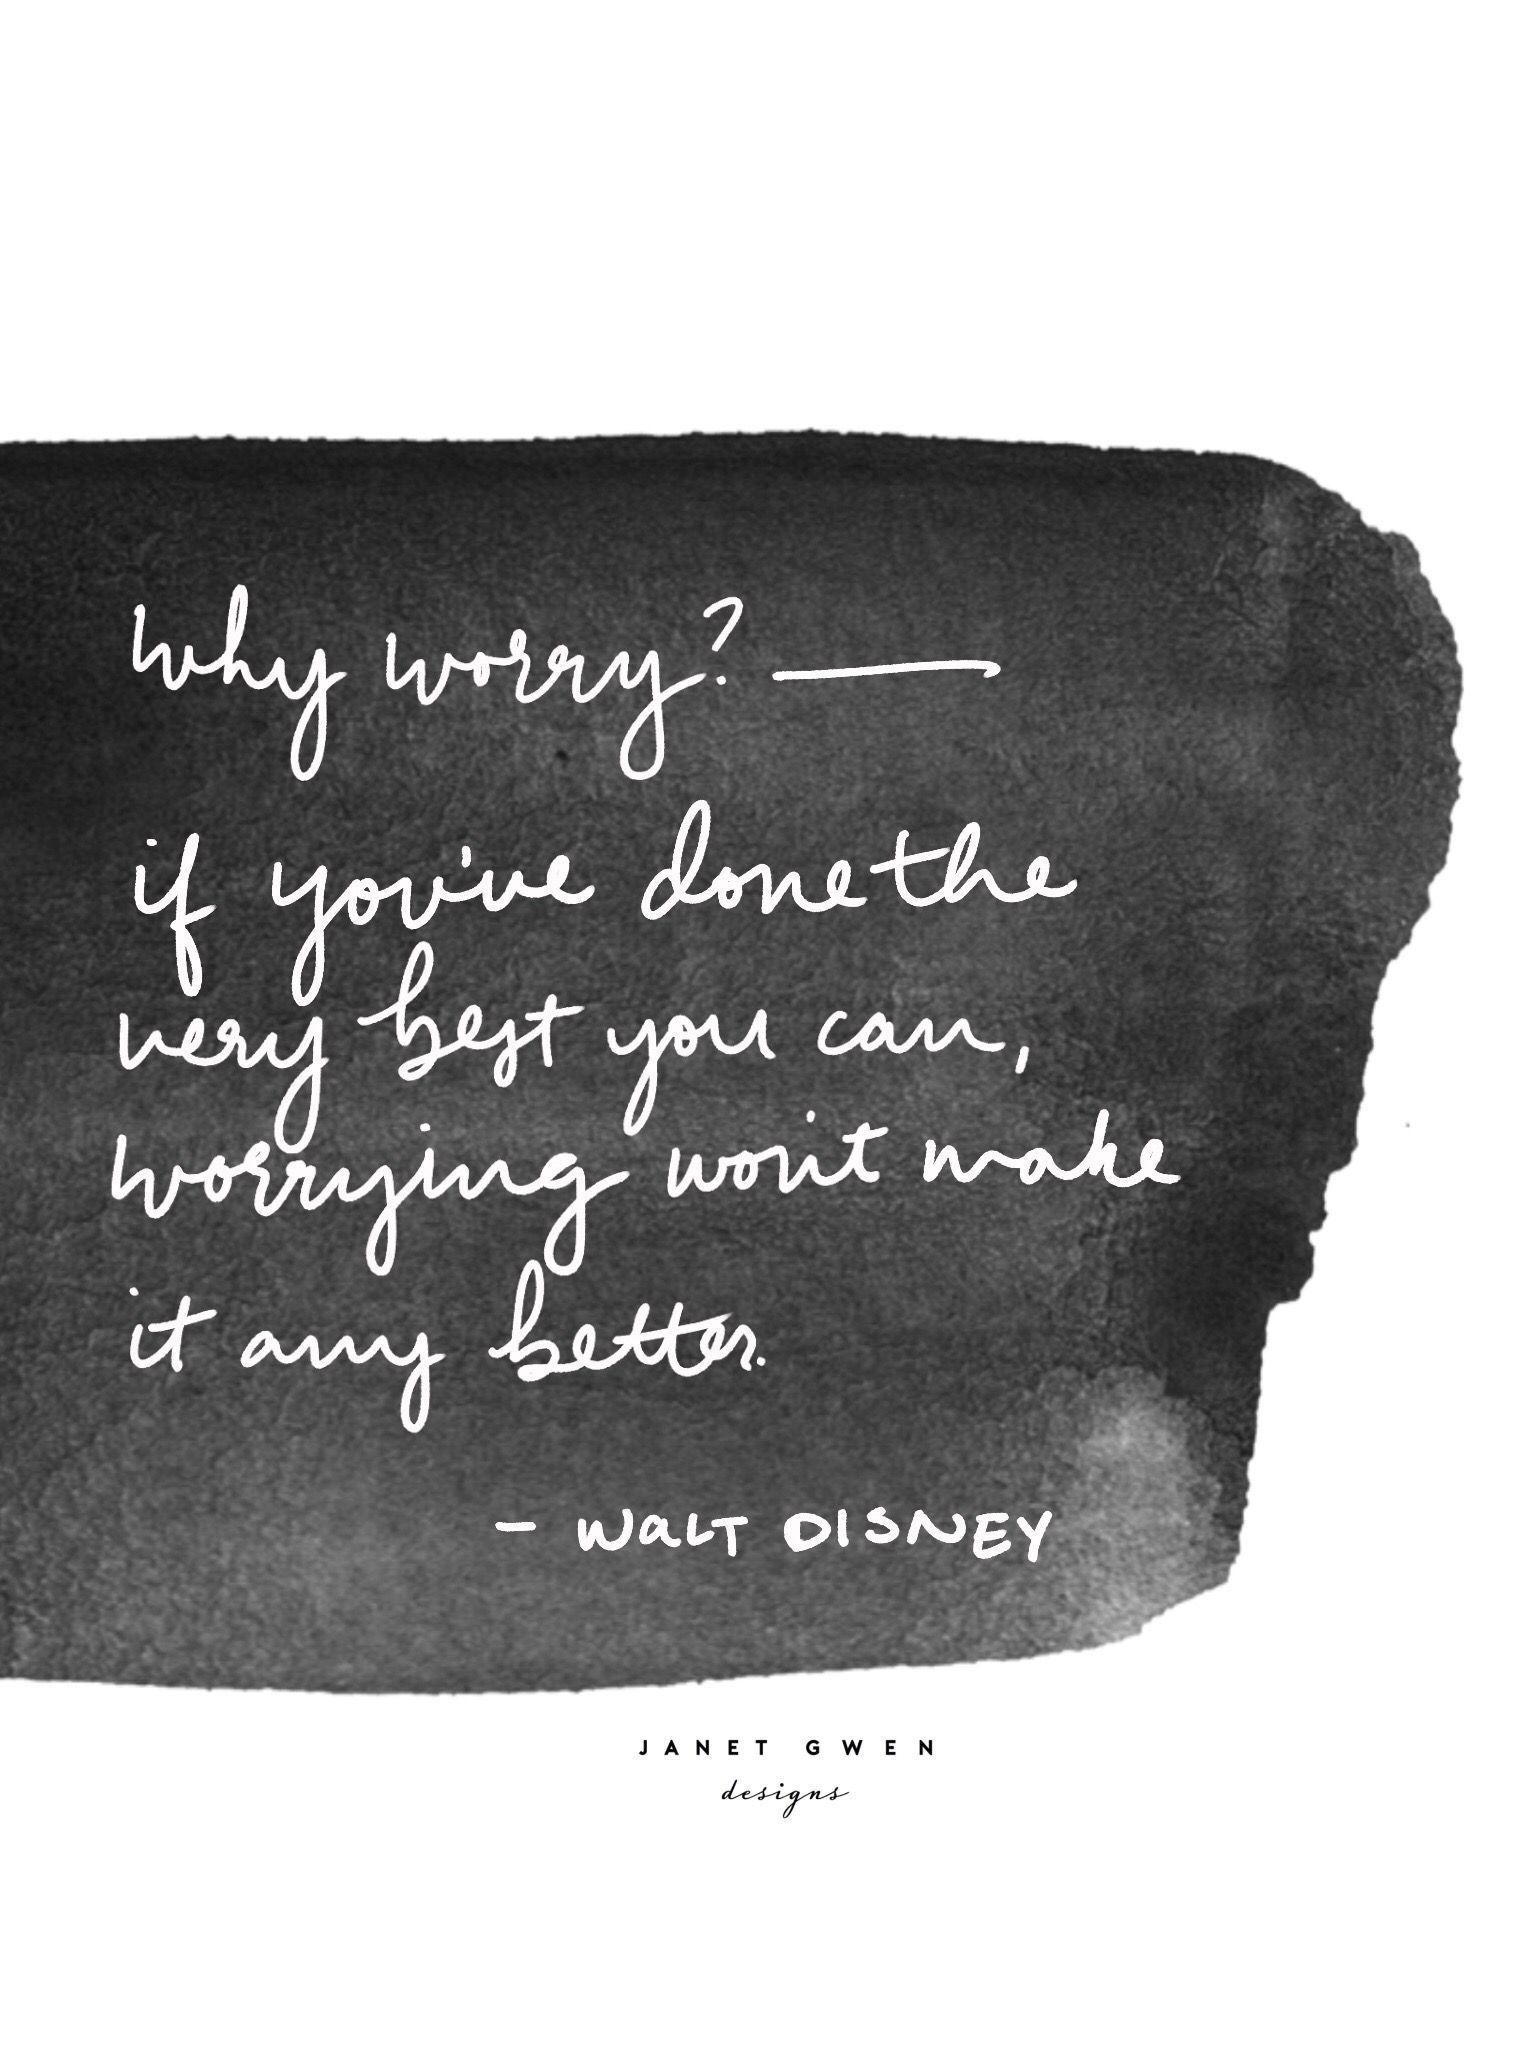 why worry? —
if you've done the
very best you can,
worrying won't make
it any better.
- WALT DISNEY
JANET GWEN
designs